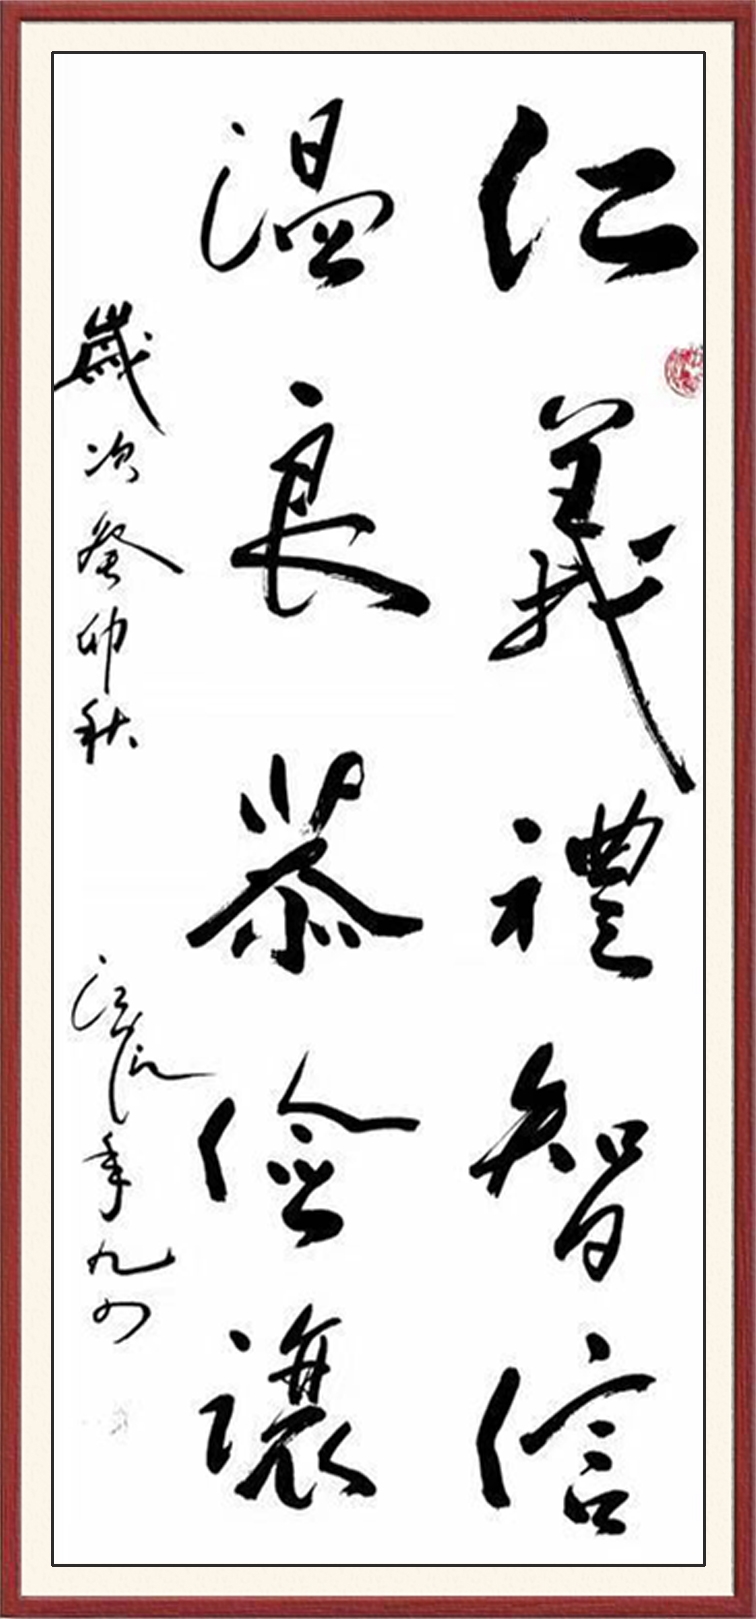 仁義禮智信
温良恭儉讓
歲次癸卯秋
年九四